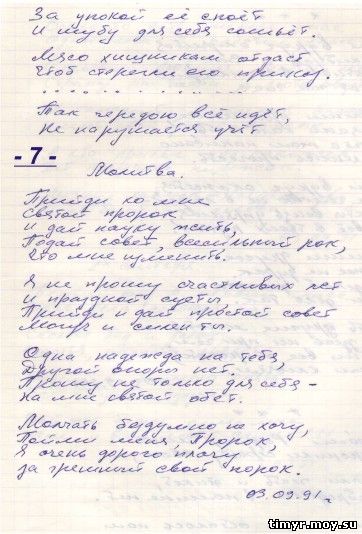 За упокой её споёт
И шубу для себя сошьёт.
Мясо хищникам отдаст
Чтоб стерегли его приказ.
. . . . . . . . . . . . .
Так чередою всё идёт,
Не нарушается учёт
- 7 -
Молитва.
Прийди ко мне
Святой пророк
И дай науку жить,
Подай совет, всесильный рок,
Что мне изменить.
Я не прошу счастливых лет
И праздной суеты,
Прийди и дай простой совет
Могуч и силен ты.
Одна надежда на тебя,
Другой опоры нет.
Прошу не только для себя -
На мне святой обет.
Молчать бездумно не хочу,
Пойми меня, Пророк,
Я очень дорого плачу
За грешный свой порок.
03.09.91 г.
timyr.moy.su